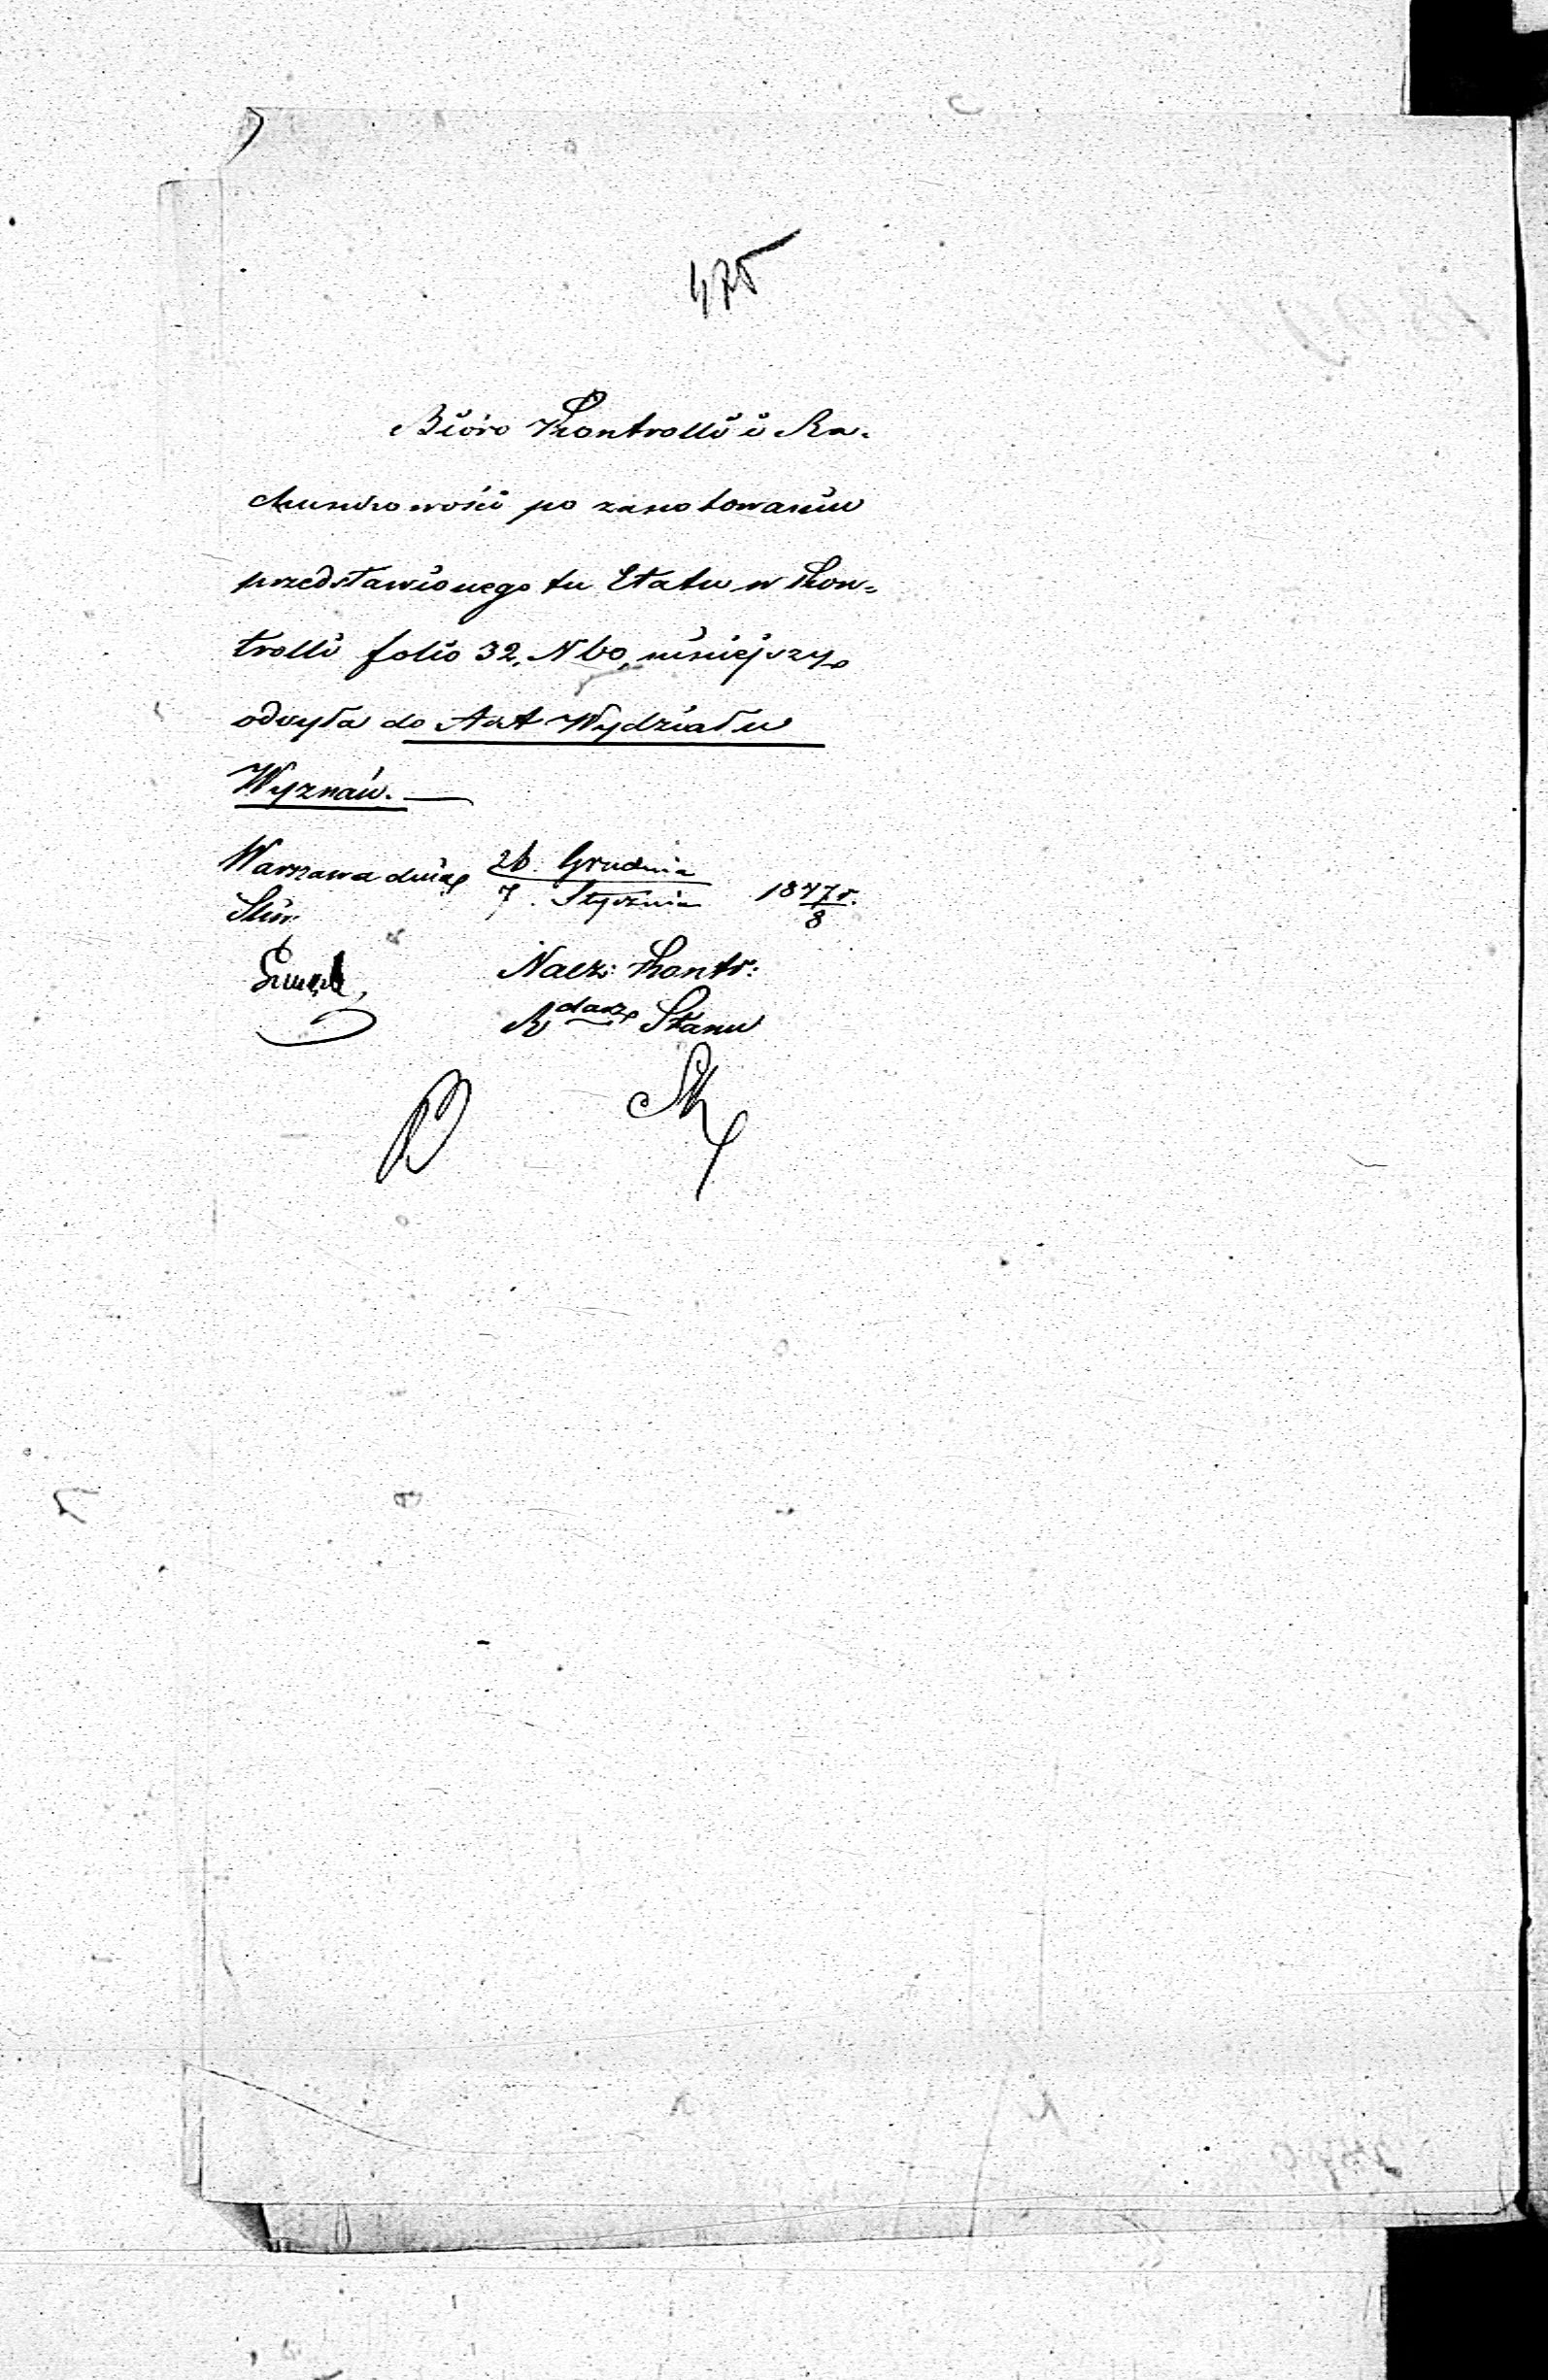 475
Bióro Kontrolli i Ra-
chunkowości po zanotowaniu
przedstawionego tu Etatu w Kon-
trolli folio 32, N 60, niniejszy
odsyła do Akt Wydziału
Wyznań. —
Warszawa dnia 26. Grudnia
7. Stycznia 1847/8 r.
Nacz: Kontr:
Rdca Stanu